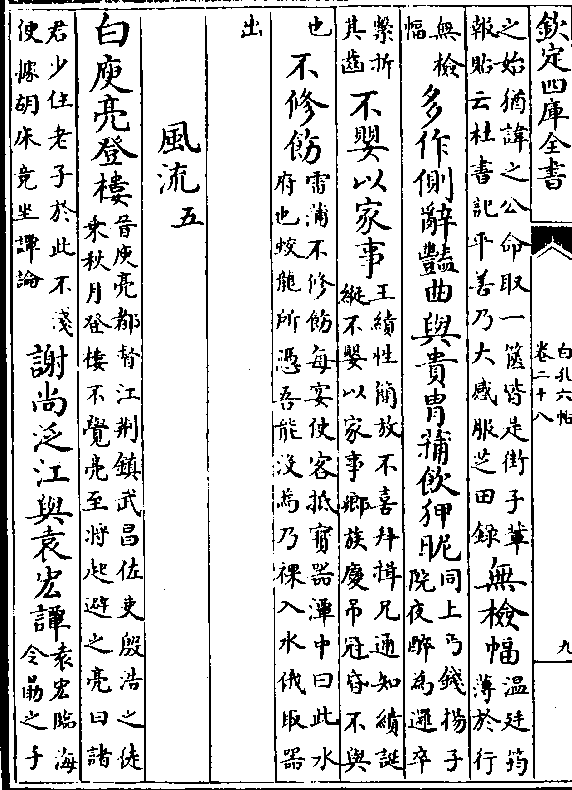 欽定四庫全書
白孔六帖
卷二十八
九
之始猶諱之公命取一篋皆是街子輩
報貼云杜書記平善乃大感服芝田錄
無檢幅
溫廷筠
薄於行
無檢
幅
多作側辭豔曲與貴胄蒱飲狎昵
同上丐錢揚子
院夜醉為邏卒
擊折
其齒
不嬰以家事
王績性簡放不喜拜揖兄通知績誕
縱不嬰以家事鄉族慶弔冠昏不與
也
不修飭
雷蒲不修飭每宴使客抵寶器潭中曰此水
府也蛟龍所憑吾能沒焉乃裸入水俄取器
出
風流五
白庾亮登樓
昔庾亮都督江荆鎮武昌佐吏殷浩之徒
乘秋月登樓不覺亮至將起避之亮曰諸
君少住老子於此不淺
便據胡床竟坐譚論
謝尚泛江與袁宏譚
袁宏臨海
令勗之子